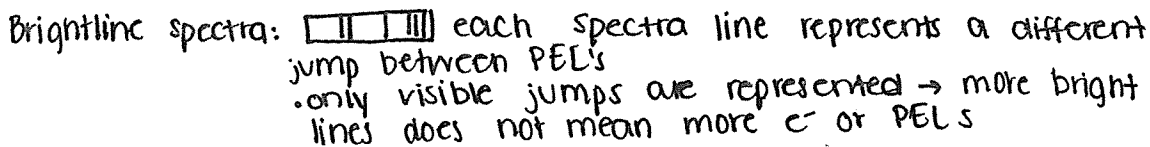 Brightline spectra: each spectra line represents a different
jump between PEL's
•only visible jumps are represented → more bright
lines does not mean more e- or PELs